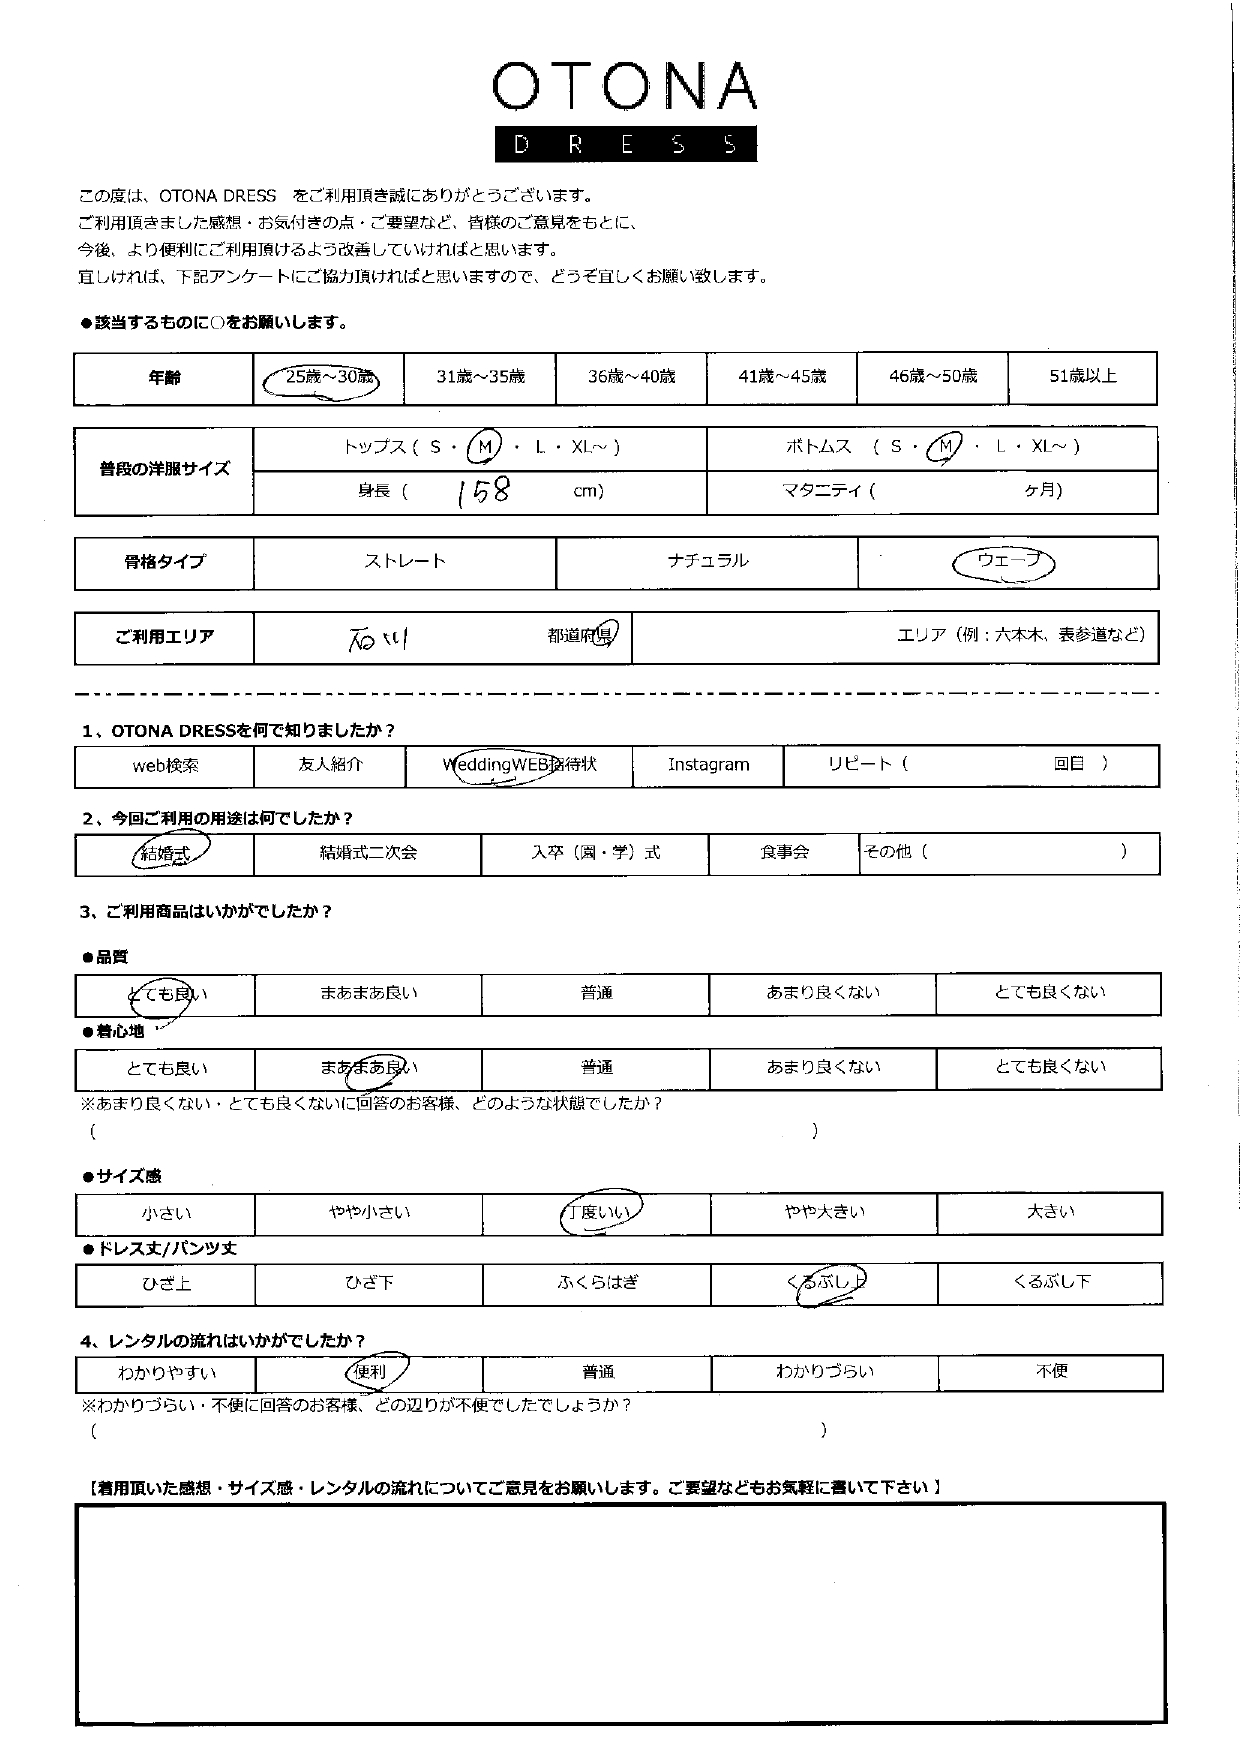 OTONA
DRESS
この度は、OTONA DRESS　をご利用頂き誠にありがとうございます。
ご利用頂きました感想・お気付きの点・ご要望など、皆様のご意見をもとに、
今後、より便利にご利用頂けるよう改善していければと思います。
宜しければ、下記アンケートにご協力頂ければと思いますので、どうぞ宜しくお願い致します。
●該当するものに○をお願いします。
年齢 25歳～30歳 31歳～35歳 36歳～40歳 41歳～45歳 46歳～50歳 51歳以上
普段の洋服サイズ トップス ( S ・ M ・ L ・ XL～ ) ボトムス ( S ・ M ・ L ・ XL～ )
身長 ( 158 cm) マタニティ ( ヶ月)
骨格タイプ ストレート ナチュラル ウェーブ
ご利用エリア 石川 都道府県 エリア（例：六本木、表参道など）
1、OTONA DRESSを何で知りましたか？
web検索 友人紹介 WeddingWEB招待状 Instagram リピート（ 回目 ）
2、今回ご利用の用途は何でしたか？
結婚式 結婚式二次会 入卒（園・学）式 食事会 その他（ ）
3、ご利用商品はいかがでしたか？
●品質
とても良い まあまあ良い 普通 あまり良くない とても良くない
●着心地
とても良い まあまあ良い 普通 あまり良くない とても良くない
※あまり良くない・とても良くないに回答のお客様、どのような状態でしたか？
（ ）
●サイズ感
小さい やや小さい 丁度いい やや大きい 大きい
●ドレス丈/パンツ丈
ひざ上 ひざ下 ふくらはぎ くるぶし上 くるぶし下
4、レンタルの流れはいかがでしたか？
わかりやすい 便利 普通 わかりづらい 不便
※わかりづらい・不便に回答のお客様、どの辺りが不便でしたでしょうか？
（ ）
【着用頂いた感想・サイズ感・レンタルの流れについてご意見をお願いします。ご要望などもお気軽に書いて下さい 】